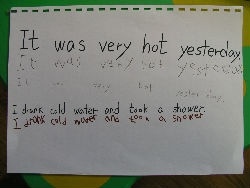 It was very hot yesterday.
It was very hot yesterday
It was very hot yesterday.
I drank cold water and took a shower.
I drank cold water and took a shower